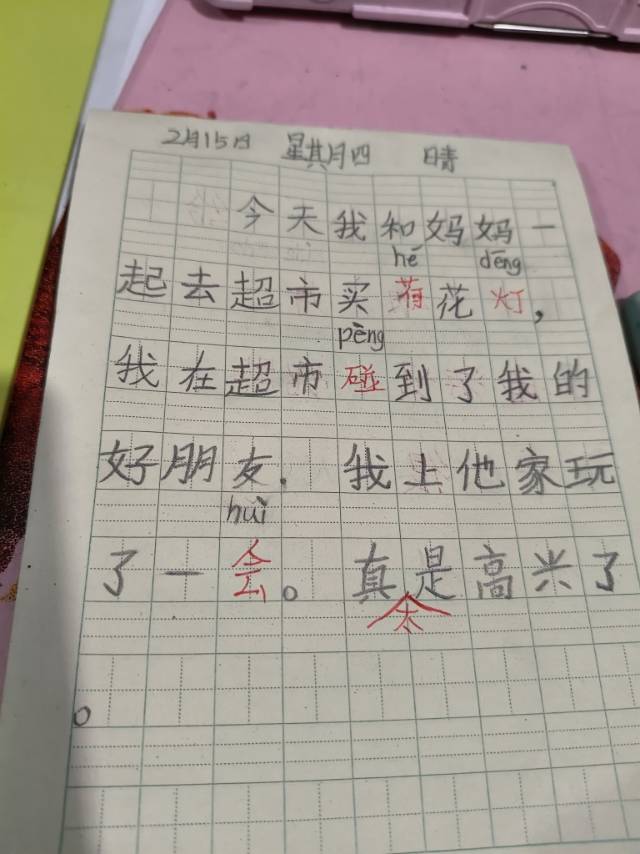 2月15日 星期四 晴
今天我和妈妈一
hé dēng
起去超市买荷花灯，
pèng
我在超市碰到了我的
好朋友. 我上他家玩
huì
了一会。真是高兴了
太
。